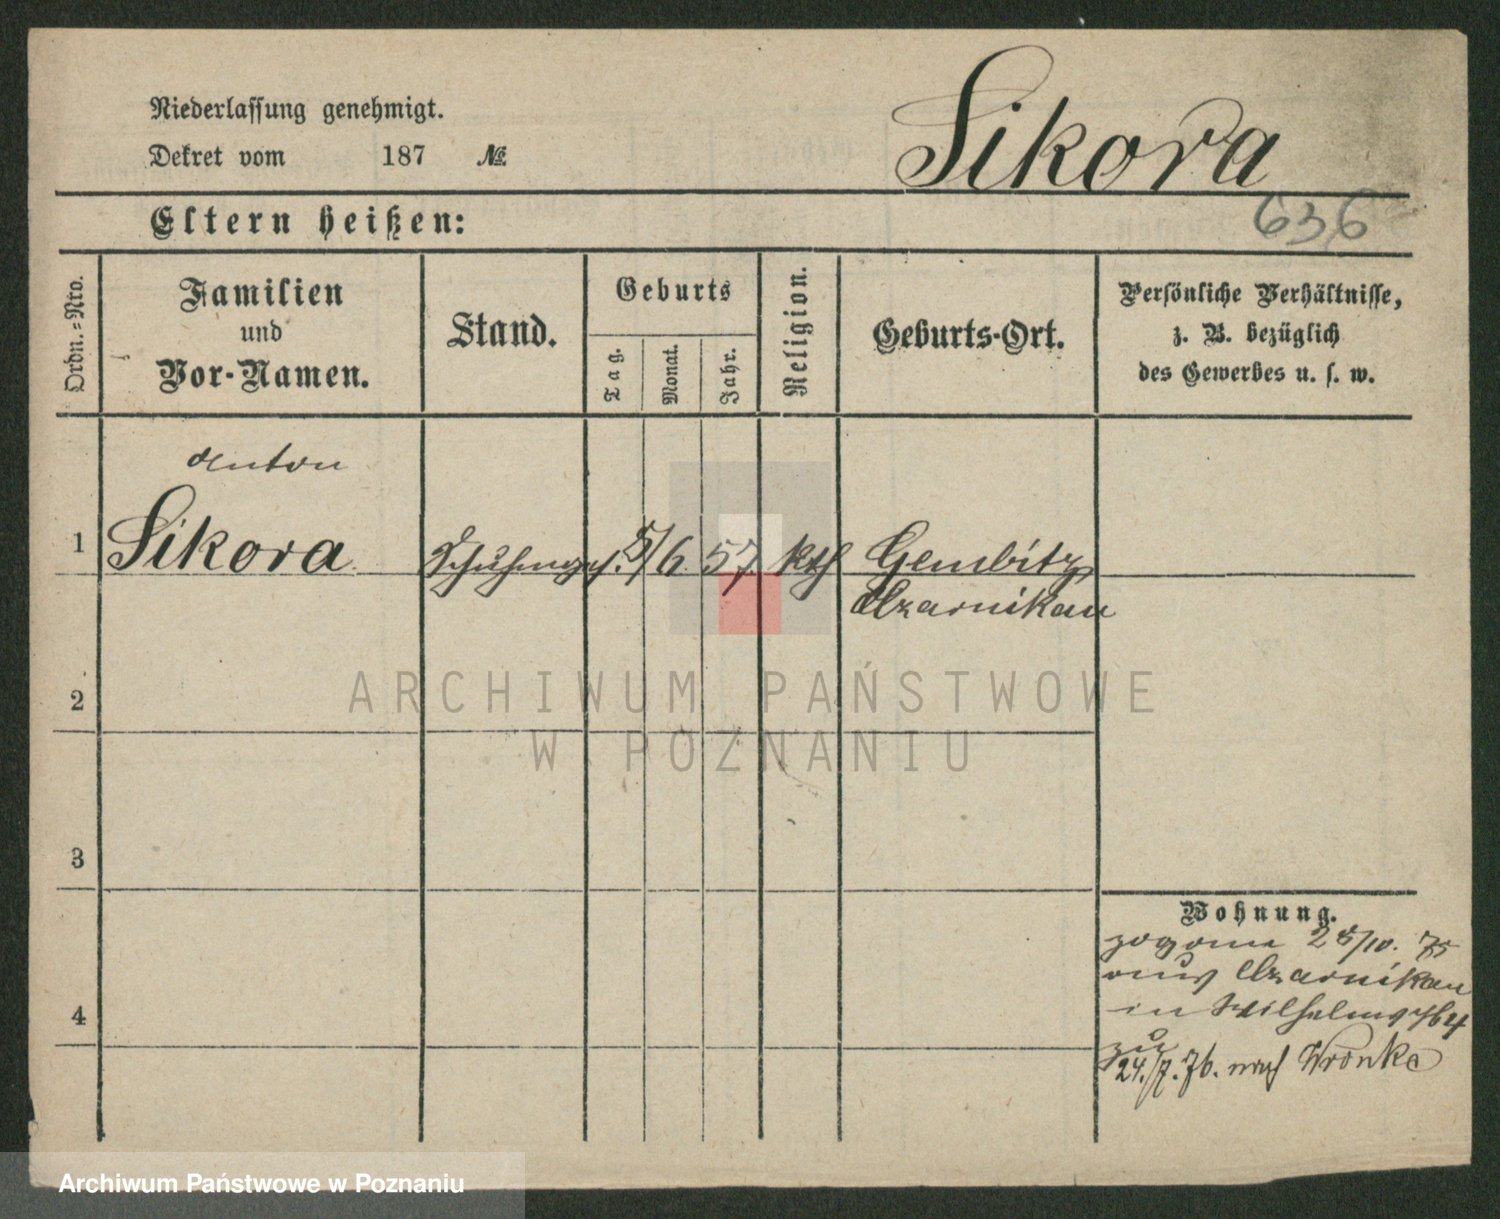 Niederlassung genehmigt.
Dekret vom 187 №
Sikora
636
Eltern heißen:
Ordn.-Nro.
Familien
und
Vor-Namen.
Stand.
Geburts
Tag.
Monat.
Jahr.
Religion.
Geburts-Ort.
Persönliche Verhältnisse,
z. B. bezüglich
des Gewerbes u. s. w.
Anton
1 Sikora Schuhmges. 5/6 57. kth Gembitz
Czarnikau
2
3
4
Wohnung.
28/10. 75
aus Czarnikau
in Wilhelms
zu
24./7. 76. nach Wronke
ARCHIWUM PAŃSTWOWE
W POZNANIU
Archiwum Państwowe w Poznaniu